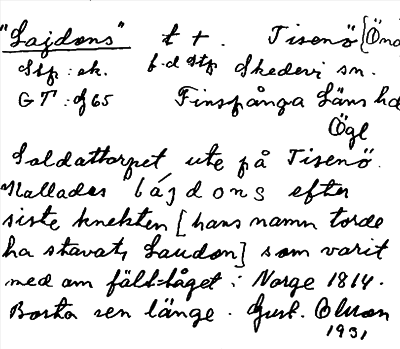 "Lajdons" t t. Tisenö [Öna
Stp: ek. f.d. Stp Skedevi sn.
GT: Öf 65 Finspånga Läns hd
Ögl
Soldattorpet ute på Tisenö.
Kallades lájdons efter
siste knekten [hans namn torde
ha stavats Laudon] som varit
med om fält-tåget i Norge 1814.
Borta sen länge. Gust. Olson
1931